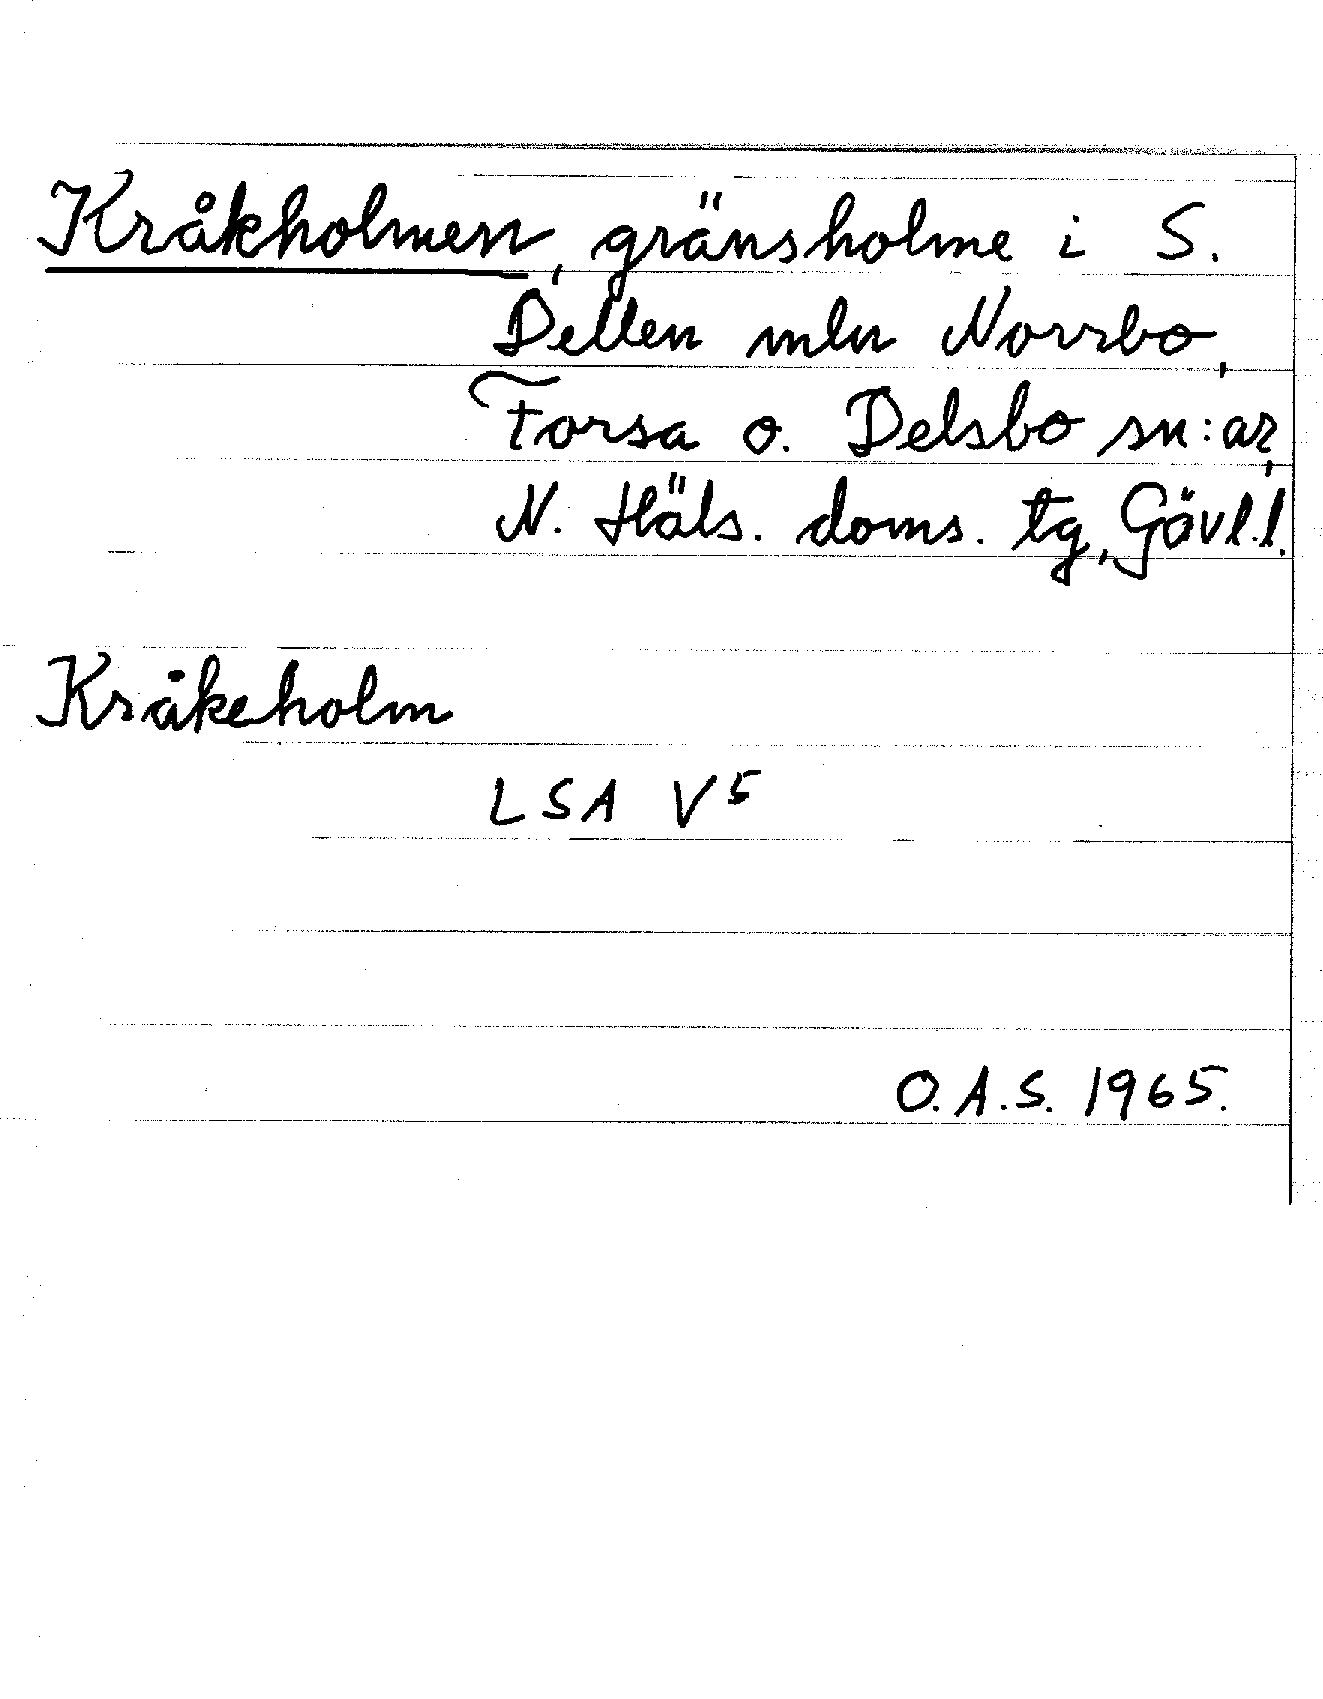 Kråkholmen, gränsholme i S.
Dellen mln Norrbo,
Forsa o. Delsbo sn:ar,
N. Häls. doms. tg, Gävl.l.
Kråkeholm
LSA V5
O.A.S. 1965.